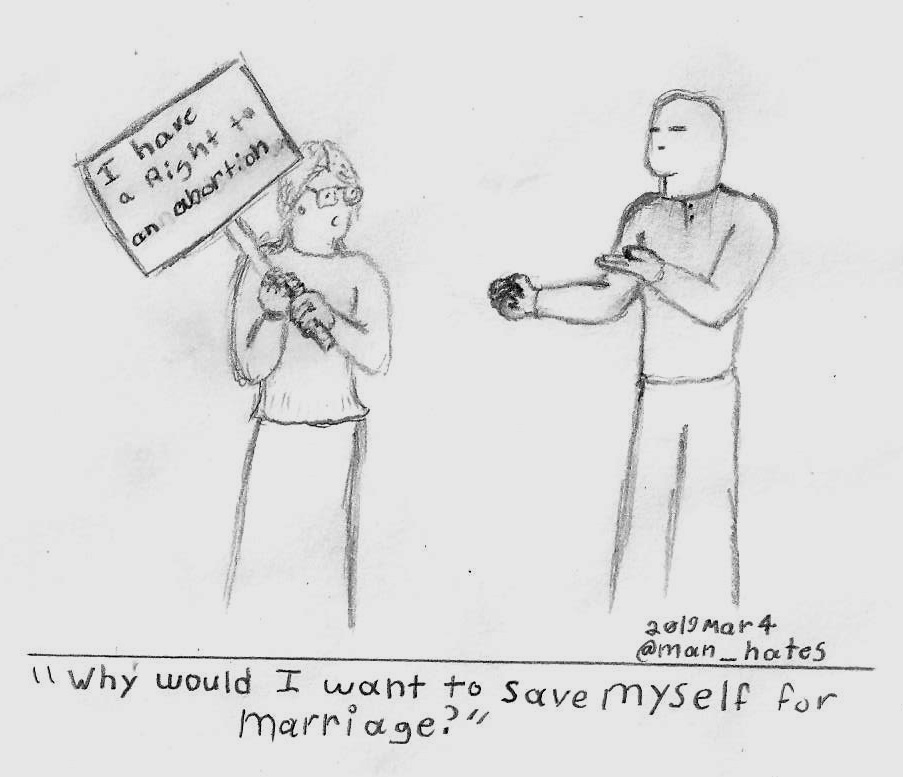 I have
a Right to
an abortion
2019 Mar 4
@man_hates
"Why would I want to save myself for
marriage?"